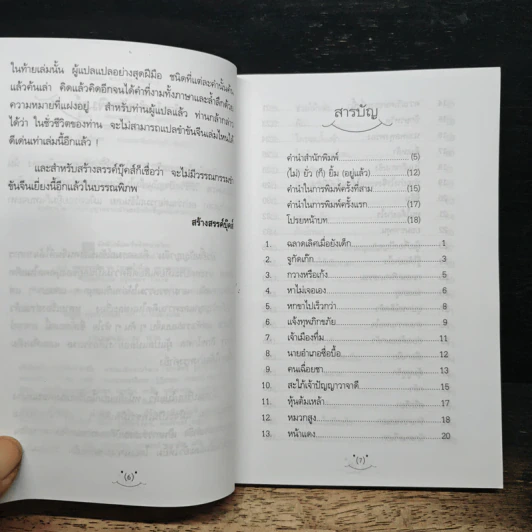 ในท้ายเล่มนั้น ผู้แปลแปลอย่างสุดฝีมือ ชนิดที่แต่ละคำนั้นค้น
แล้วค้นเล่า คิดแล้วคิดอีกจนได้คำที่งามทั้งภาษาและล้ำลึกด้วย
ความหมายที่แฝงอยู่ สำหรับท่านผู้แปลแล้ว ท่านกล้ากล่าว
ได้ว่า ในชั่วชีวิตของท่าน จะไม่สามารถแปลขำขันจีนเล่มไหนได้
ดีเด่นเท่าเล่มนี้อีกแล้ว !
และสำหรับสร้างสรรค์บุ๊คส์ก็เชื่อว่า จะไม่มีวรรณกรรมขำ
ขันจีนเยี่ยงนี้อีกแล้วในบรรณพิภพ
สร้างสรรค์บุ๊คส์
(6)
สารบัญ
คำนำสำนักพิมพ์ (5)
(ไม่) ยั่ว (ก็) ยิ้ม (อยู่แล้ว) (12)
คำนำในการพิมพ์ครั้งที่สาม (15)
คำนำในการพิมพ์ครั้งแรก (17)
โปรยหน้าบท (18)
1. ฉลาดเลิศเมื่อยังเด็ก 1
2. จูกัดเก๊ก 3
3. กวางหรือเก้ง 5
4. หาไม่เจอเอง 6
5. หกขาไปเร็วกว่า 8
6. แจ้งทุพภิกขภัย 9
7. เจ้าเมืองหื่ม 11
8. นายอำเภอซื่อบื้อ 12
9. คนเฉื่อยชา 13
10. สะใภ้เจ้าปัญญาวาจาดี 16
11. หุ้นต้มเหล้า 17
12. หมวกสูง 18
13. หน้าแดง 20
(7)